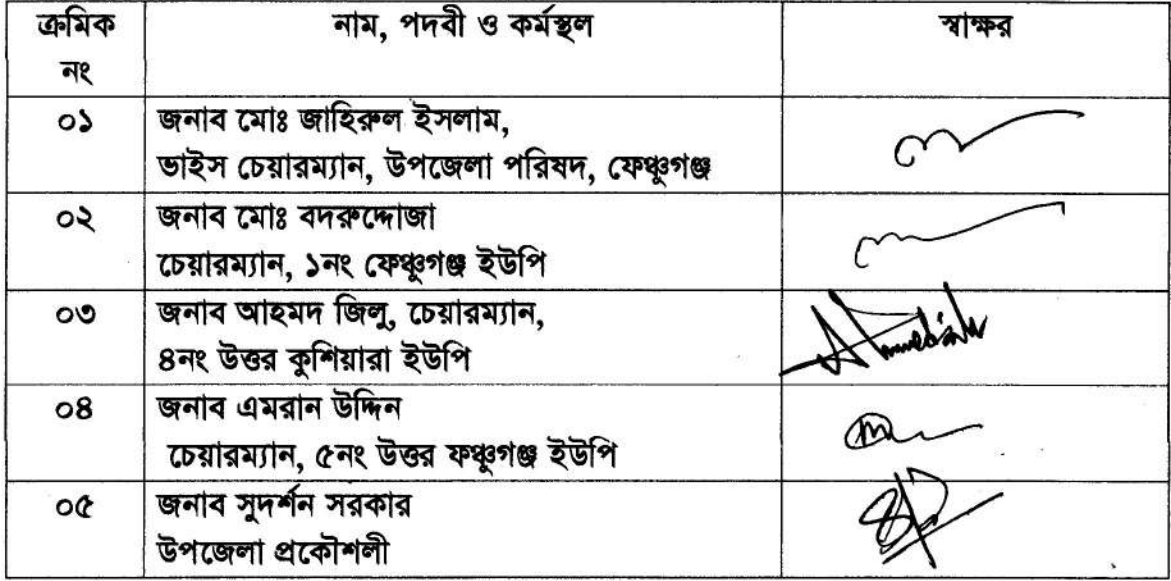 ক্রমিক নং
নাম, পদবী ও কর্মস্থল
স্বাক্ষর
০১
জনাব মোঃ জাহিরুল ইসলাম,
ভাইস চেয়ারম্যান, উপজেলা পরিষদ, ফেঞ্চুগঞ্জ
০২
জনাব মোঃ বদরুদ্দোজা
চেয়ারম্যান, ১নং ফেঞ্চুগঞ্জ ইউপি
০৩
জনাব আহমদ জিলু, চেয়ারম্যান,
৪নং উত্তর কুশিয়ারা ইউপি
০৪
জনাব এমরান উদ্দিন
চেয়ারম্যান, ৫নং উত্তর ফঞ্চুগঞ্জ ইউপি
০৫
জনাব সুদর্শন সরকার
উপজেলা প্রকৌশলী